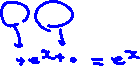 +e^x + • = e^x